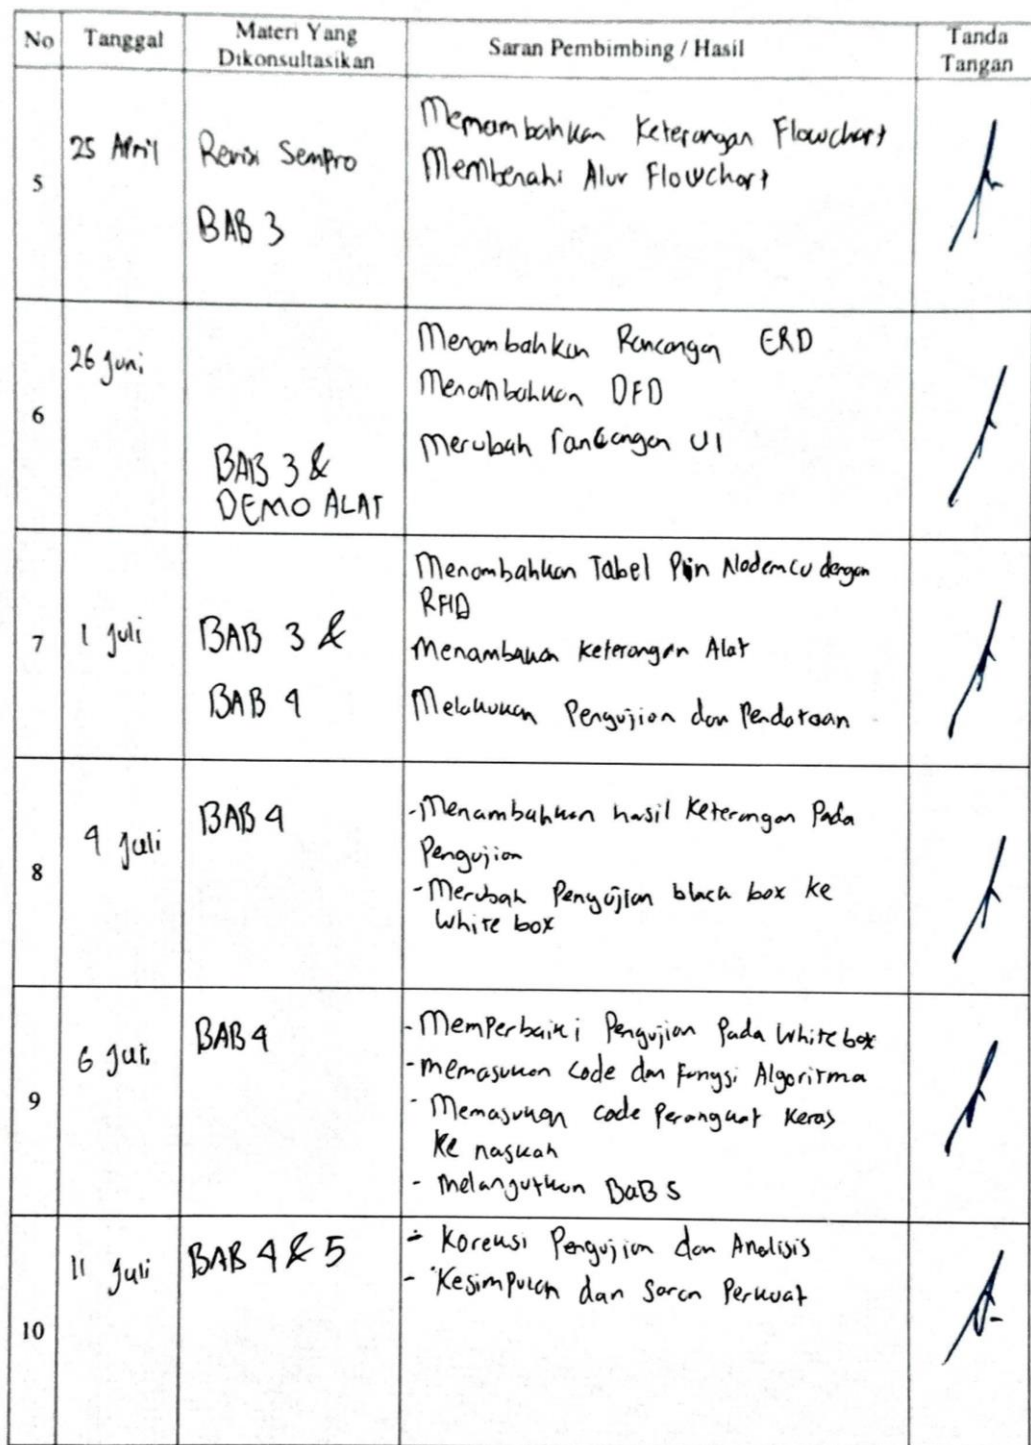 No Tanggal Materi Yang Dikonsultasikan Saran Pembimbing / Hasil Tanda Tangan
5
25 April
Revisi Sempro
BAB 3
Menambahkan Keterangan Flowchart
Membenahi Alur Flowchart
6
26 Juni
BAB 3 &
DEMO ALAT
Menambahkan Rancangan ERD
Menambahkan DFD
Merubah rancangan UI
7
1 Juli
BAB 3 &
BAB 4
Menambahkan Tabel Pin Nodemcu dengan
RFID
Menambahkan Keterangan Alat
Melakukan Pengujian dan Pendataan
8
4 Juli
BAB 4
- Menambahkan hasil Keterangan Pada
Pengujian
- Merubah Pengujian black box ke
white box
9
6 Juli
BAB 4
- Memperbaiki Pengujian Pada White box
- memasukan Code dan Fungsi Algoritma
- Memasukan code Perangkat Keras
Ke naskah
- Melanjutkan BaB 5
10
11 Juli
BAB 4 & 5
- Koreksi Pengujian dan Analisis
- Kesimpulan dan Saran Perkuat